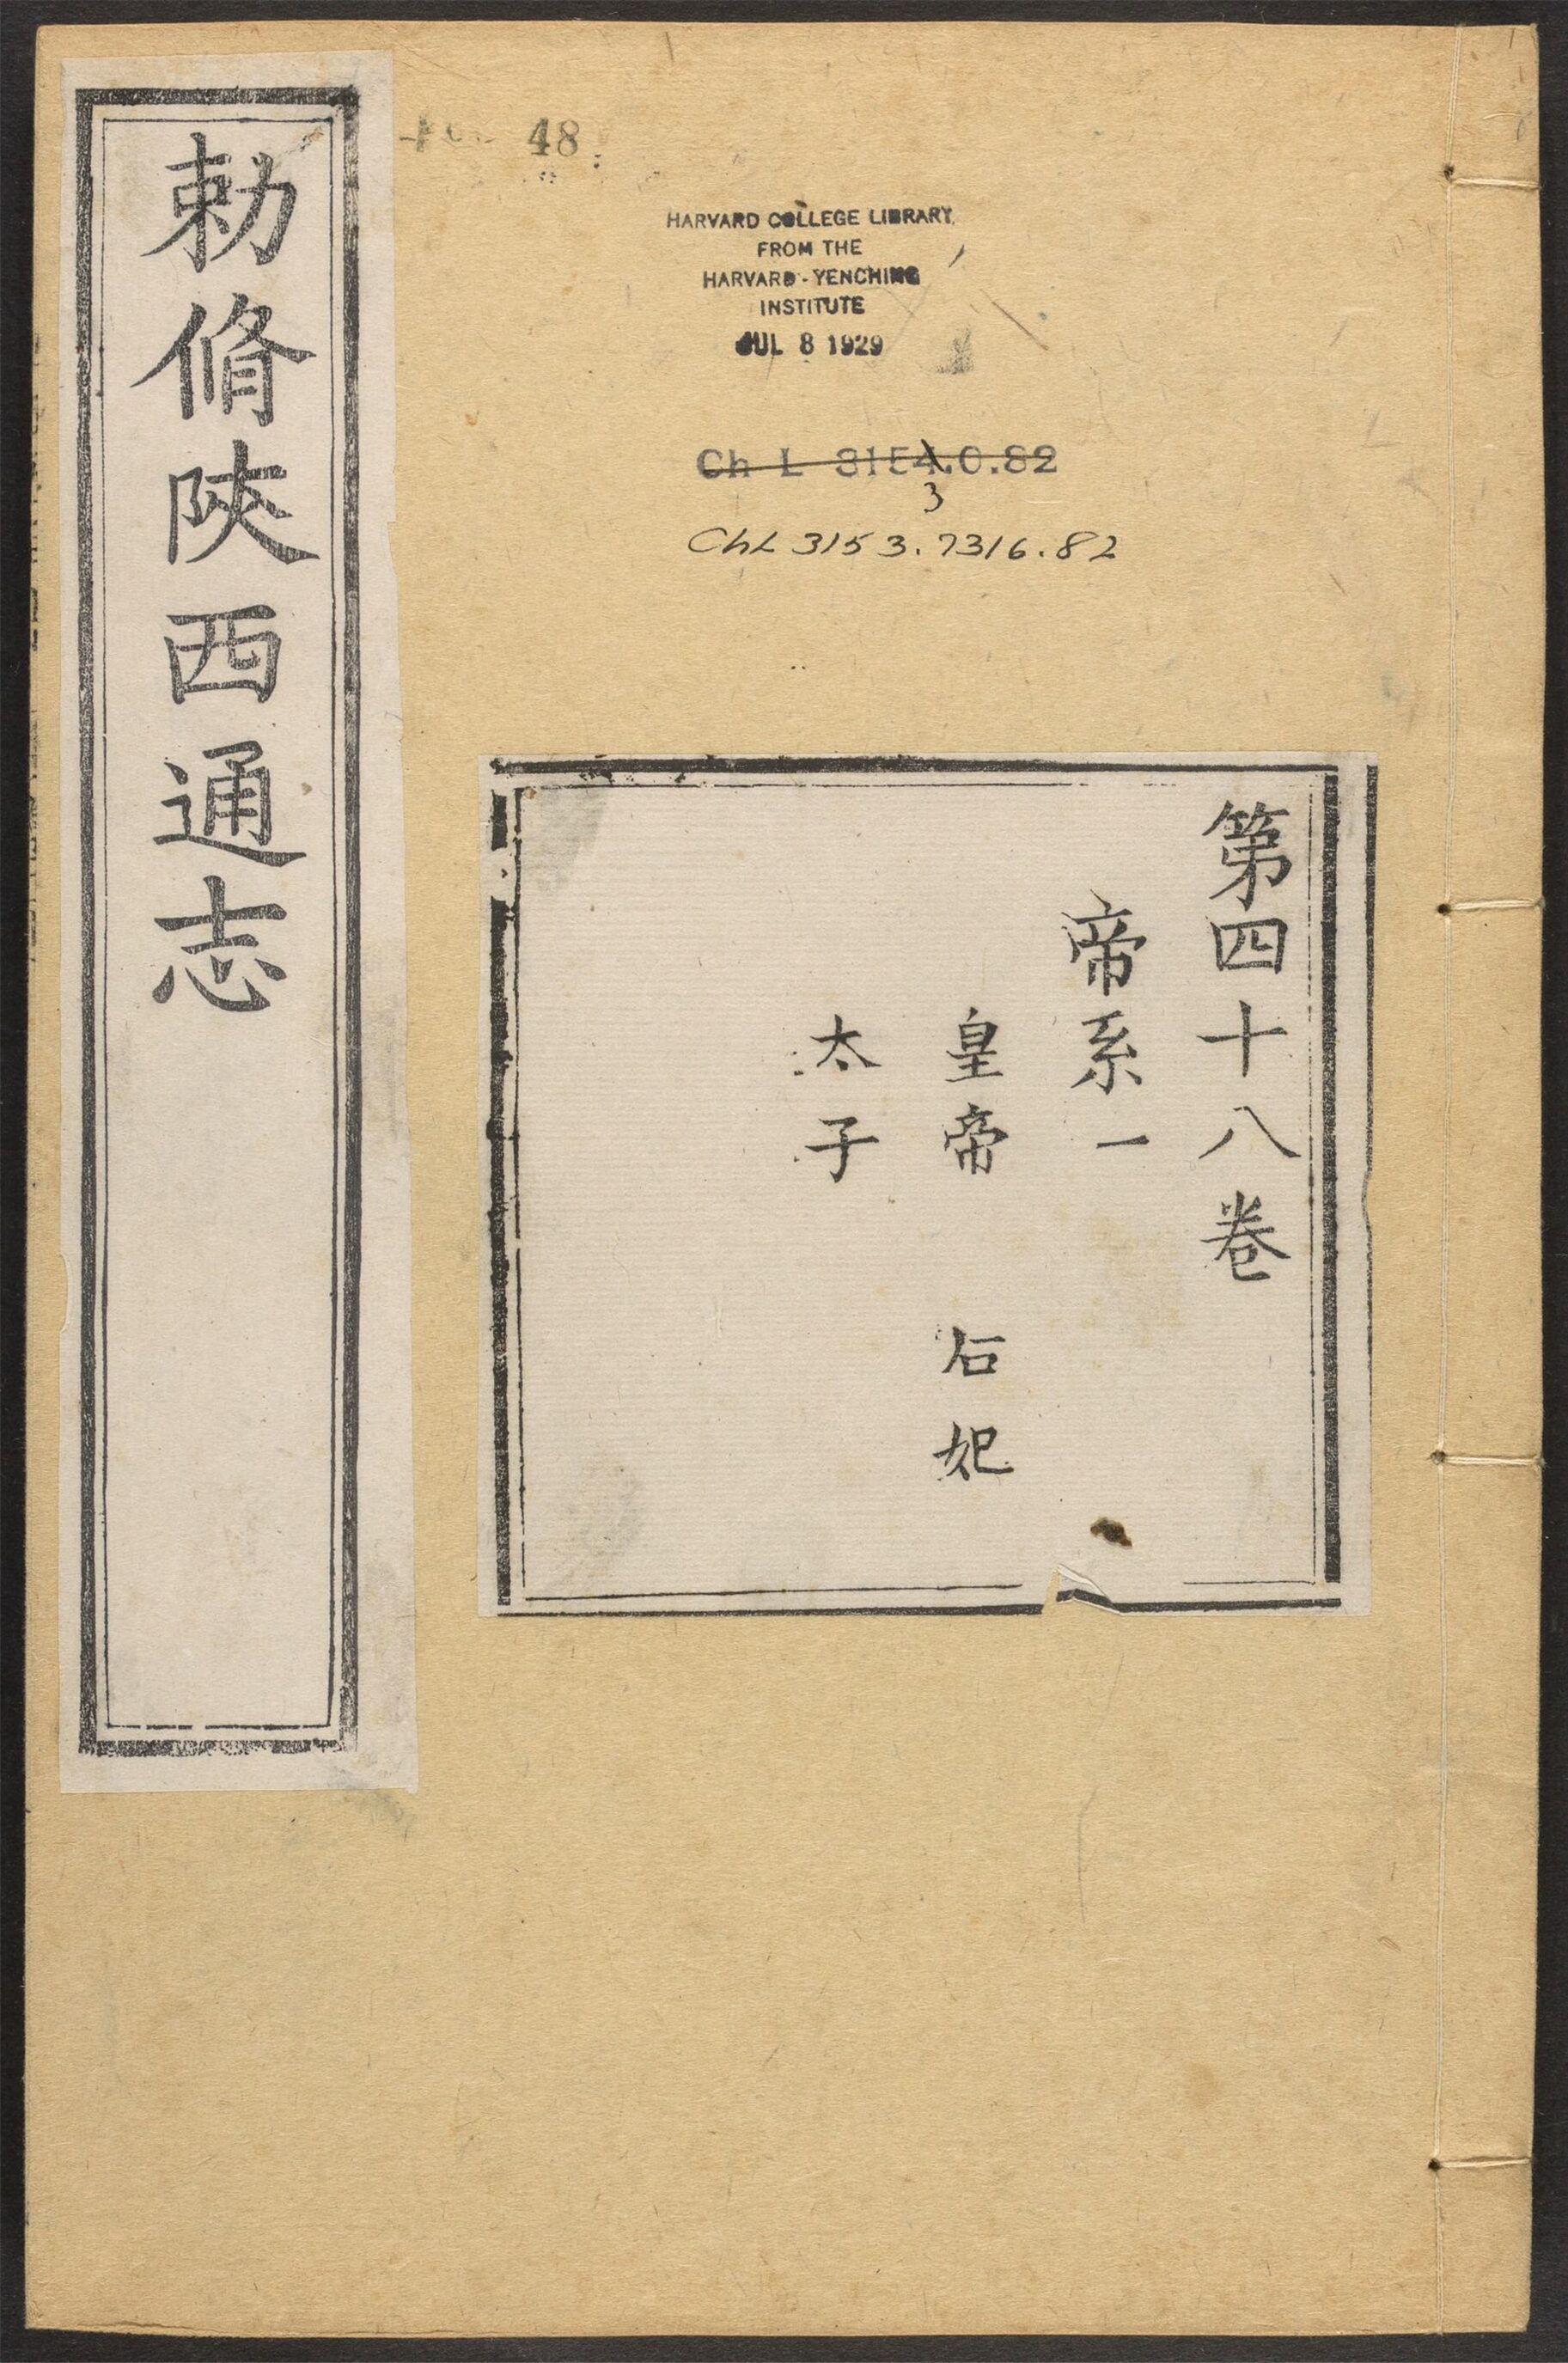 勅脩陜西通志
48
HARVARD COLLEGE LIBRARY
FROM THE
HARVARD-YENCHING
INSTITUTE
JUL 8 1929
Ch L 3154.0.82
3
ChL 3153.7316.82
第四十八卷
帝系一
皇帝 后妃
太子